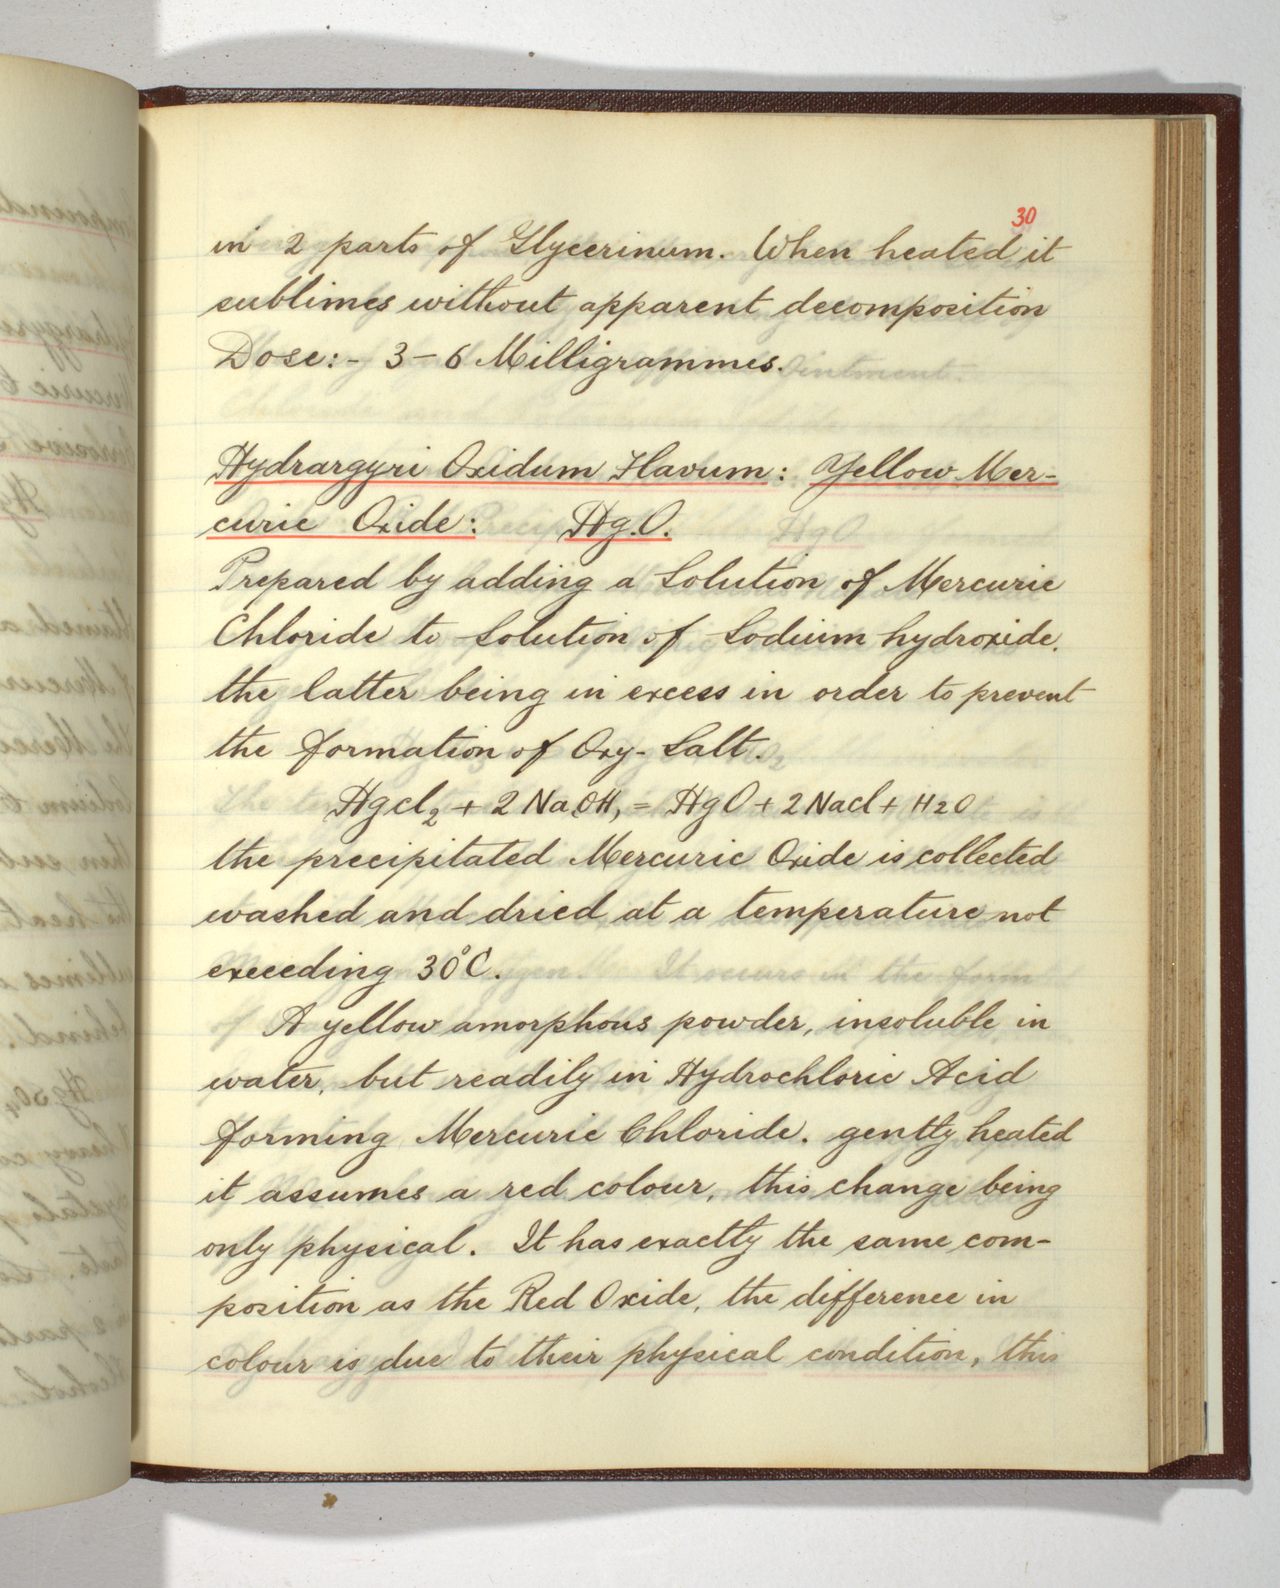 30
in 2 parts of Glycerinum. When heated it
sublimes without apparent decomposition
Dose:- 3-6 Milligrammes.
Hydrargyri Oxidum Flavum: Yellow Mer-
curic Oxide: Hg.O.
Prepared by adding a Solution of Mercuric
Chloride to Solution of Sodium hydroxide.
the latter being in excess in order to prevent
the formation of Oxy-Salt.
Hgcl2 + 2 NaOH, = HgO + 2 Nacl + H2O
the precipitated Mercuric Oxide is collected
washed and dried at a temperature not
exceeding 30°C.
A yellow amorphous powder, insoluble in
water, but readily in Hydrochloric Acid
forming Mercuric Chloride. gently heated
it assumes a red colour, this change being
only physical. It has exactly the same com-
position as the Red Oxide, the difference in
colour is due to their physical condition, this